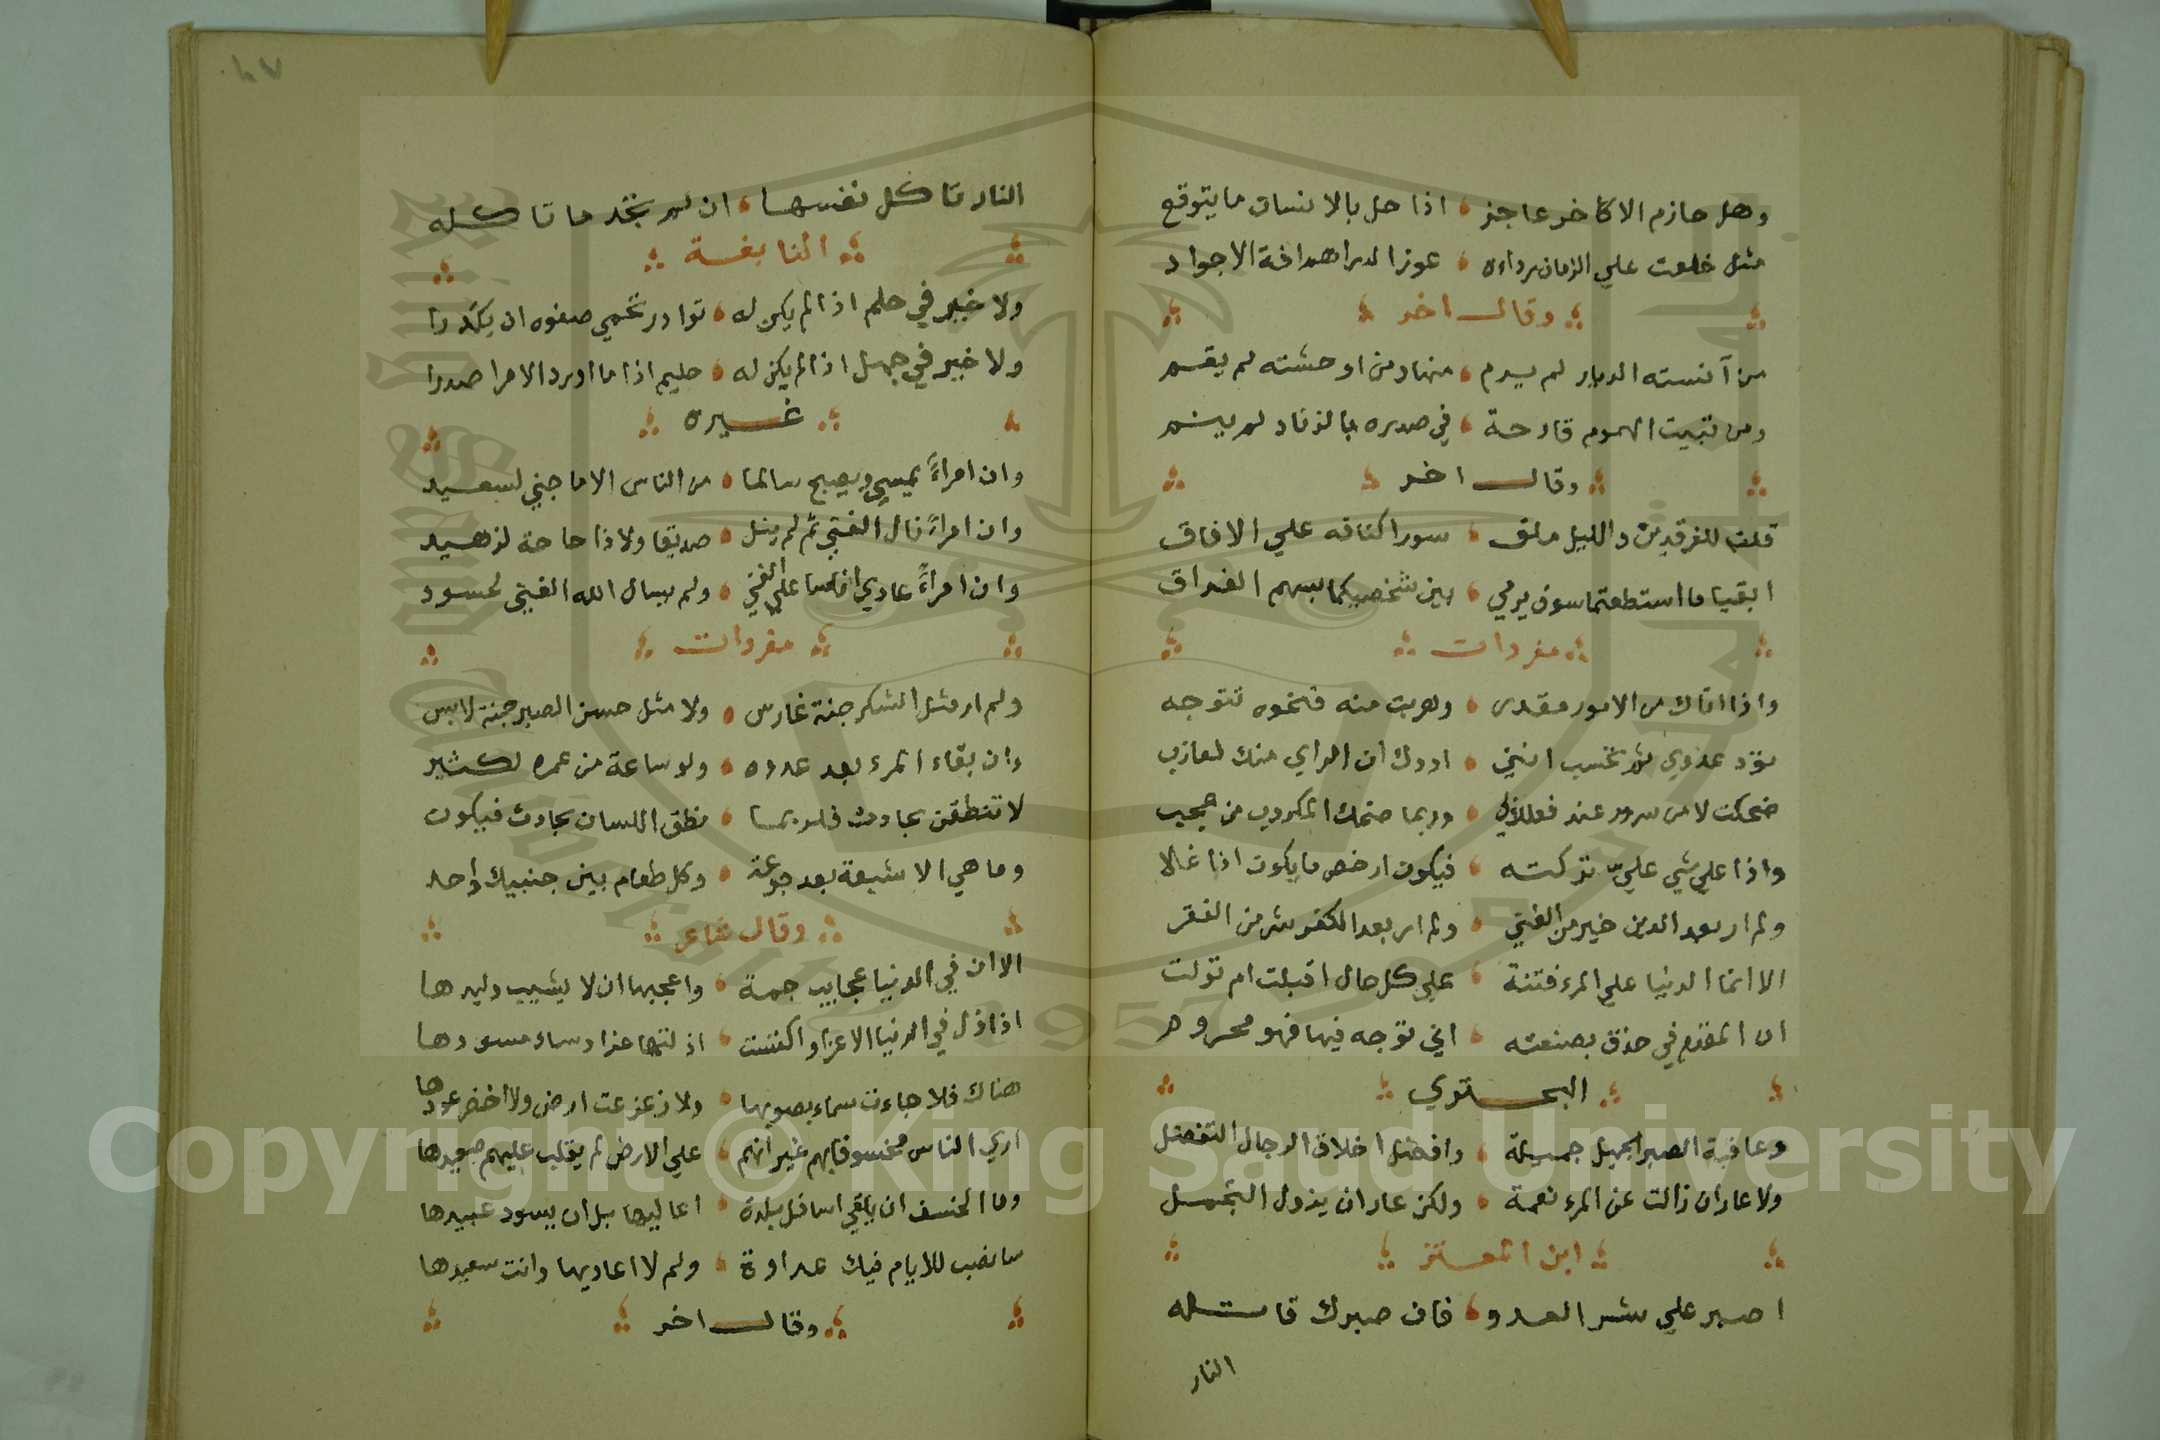 وهل حازم الا كاخر عاجز ، اذا حل بالانسان ما يتوقع
مثل خلعت علي الزمان رداءه ، عوز الدراهم افة الاجواد
وقال اخر
من آنسته الديار لم يرم ، منها ومن اوحشته لم يقم
ومن تبيت الهموم قادحة ، في صدره بالزناد لم ينم
وقال اخر
قلت للفرقدين والليل ملق ، سود اكنافه علي الافاق
ابقيا ما استطعتما سوف يرمي ، بين شخصيكما بسهم الفراق
مفردات
واذا اتاك من الامور مقدر ، وهربت منه فنحوه تتوجه
تود عدوي ثم تحسب انني ، اودك ان الراي منك لعازب
ضحكت لا من سرور عند فعلك ، وربما ضحك المكروب من عجب
واذا علي شي عليّ تركته ، فيكون ارخص ما يكون اذا غلا
ولم ار بعد الدين خير من الغني ، ولم ار بعد الكفر شر من الفقر
الا انما الدنيا علي المرء فتنة ، علي كل حال اقبلت ام تولت
ان المقدم في حذق بصنعته ، اني توجه فيها فهو محروم
البحتري
وعافية الصبر الجميل جميلة ، وافضل اخلاق الرجال التفضل
ولا عار ان زالت عن المرء نعمة ، ولكن عار ان يزول التجمل
ابن المعتز
اصبر علي شر العدو ، فان صبرك قاتله
النار
النار تاكل نفسها ، ان لم تجد ما تاكله
النابغة
ولا خير في حلم اذا لم يكن له ، توادر تحمي صفوه ان يكدرا
ولا خير في جهل اذا لم يكن له ، حليم اذا ما اورد الامرا صدرا
غيره
وان امراءً يمسي ويصبح سالما ، من الناس الا ما جني لسعيد
وان امراءً نال الغني ثم لم ينل ، صديقا ولا ذا حاجة لزهيد
وان امراءً عادي اناسا علي الغني ، ولم يسال الله الغني لحسود
مفردات
ولم ار مثل الشكر جنة غارس ، ولا مثل حسن الصبر جنة لابس
وان بقاء المرء بعد عدوه ، ولو ساعة من عمره لكثير
لا تنطقن بحادث فلربما ، نطق اللسان بحادث فيكون
وما هي الا شبعة بعد جوعة ، وكل طعام بين جنبيك واحد
وقال شاعر
الا ان في الدنيا عجايب جمة ، واعجبها ان لا يشيب وليدها
اذا ذل في الدنيا الاعز واكتست ، اذلتها عزا وساد مسودها
هناك فلا جاءت سماء بصوبها ، ولا زعزعت ارض ولا اخضر عودها
اري الناس مخسوفا بهم غير انهم ، علي الارض لم يقلب عليهم صعيدها
وما الخسف ان يلقي اسافل بلدة ، اعاليها بل ان يسود عبيدها
سانصب للايام فيك عداوة ، ولم لا اعاديها وانت سعيدها
وقال اخر
Copyright © King Saud University
1957